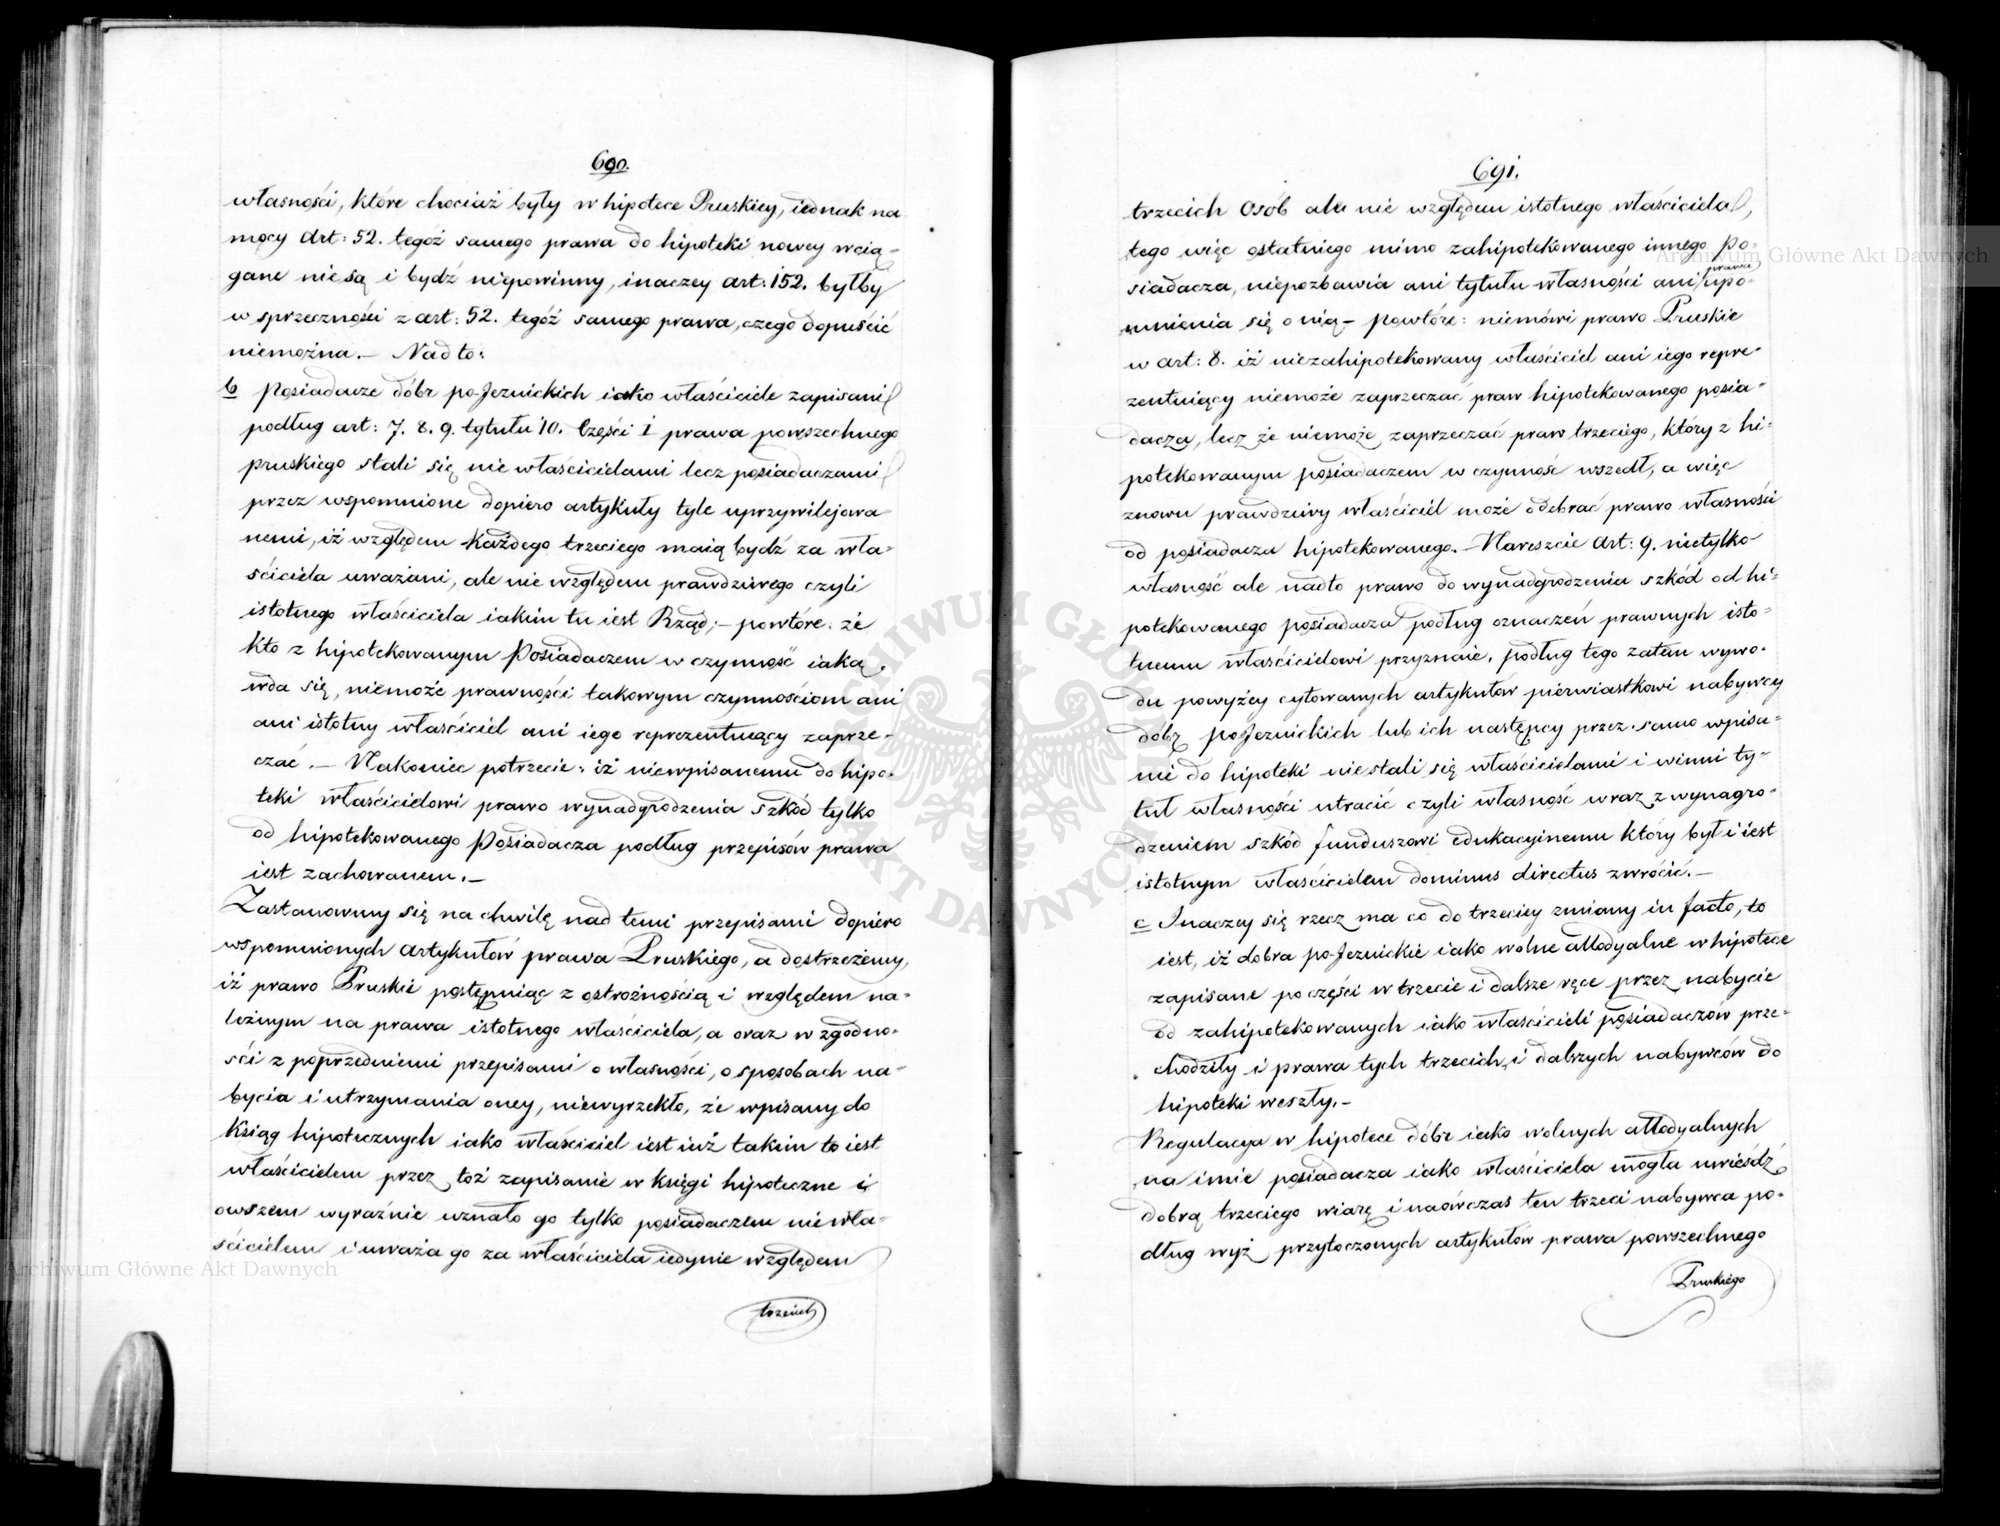 690.
własności, które chociaż były w hipotece Pruskiey, iednak na
mocy Art: 52. tegoż samego prawa do hipoteki nowey wcią-
gane nie są i bydź niepowinny, inaczey art: 152. byłby
w sprzeczności z art: 52. tegoż samego prawa, czego dopuścić
niemożna. – Nadto:
b Posiadacze dóbr po-Jezuickich iako właściciele zapisani
podług art: 7. 8. 9. tytułu 10. Części I prawa powszechnego
pruskiego stali się nie właścicielami lecz posiadaczami
przez wspomnione dopiero artykuły tyle uprzywilejowa
nemi, iż względem każdego trzeciego maią bydź za wła-
ściciela uważani, ale nie względem prawdziwego czyli
istotnego właściciela iakim tu iest Rząd; – powtóre: że
kto z hipotekowanym Posiadaczem w czynność iaką
wda się, niemoże prawności takowym czynnościom ani
ani istotny właściciel ani iego reprezentuiący zaprze-
czać. – Nakoniec potrzecie: iż niewpisanemu do hipo-
teki właścicielowi prawo wynadgrodzenia szkód tylko
od hipotekowanego Posiadacza podług przepisów prawa
iest zachowanem. –
Zastanowmy się na chwilę nad temi przepisami dopiero
wspomnionych artykułów prawa Pruskiego, a dostrzeżemy,
iż prawo Pruskie postępuiąc z ostrożnością i względem na-
leżnym na prawa istotnego właściciela, a oraz w zgodno-
ści z poprzedniemi przepisami o własności, o sposobach na-
bycia i utrzymania oney, niewyrzekło, że wpisany do
Ksiąg hipotecznych iako właściciel iest iuż takim to iest
właścicielem przez toż zapisanie w księgi hipoteczne i
owszem wyraźnie uznało go tylko posiadaczem nie wła-
ścicielem i uważa go za właściciela iedynie względem
trzecich
691.
trzecich osób ale nie względem istotnego właściciela,
tego więc ostatniego mimo zahipotekowanego innego po-
siadacza, niepozbawia ani tytułu własności ani prawa upo-
mnienia się o nią – powtóre: niemówi prawo Pruskie
w art: 8. iż niezahipotekowany właściciel ani iego repre-
zentuiący niemoże zaprzeczać praw hipotekowanego posia-
daczy, lecz że niemoże zaprzeczać praw trzeciego, który z hi-
potekowanym posiadaczem w czynność wszedł, a więc
znowu prawdziwy właściciel może odebrać prawo własności
od posiadacza hipotekowanego. – Nareszcie Art: 9. nietylko
własność ale nadto prawo do wynadgrodzenia szkód od hi-
potekowanego posiadacza podług oznaczeń prawnych isto-
tnemu właścicielowi przyznaie. podług tego zatem wywo-
du powyżey cytowanych artykułów pierwiastkowi nabywcy
dóbr po-Jezuickich lub ich następcy przez samo wpisa-
nie do hipoteki niestali się właścicielami i winni ty-
tuł własności utracić czyli własność wraz z wynagro-
dzeniem szkód funduszowi edukacyinemu który był i iest
istotnym właścicielem dominus directus zwrócić. –
c Inaczey się rzecz ma co do trzeciey zmiany in facto, to
iest, iż dobra po-Jezuickie iako wolne allodyalne w hipotece
zapisane po części w trzecie i dalsze ręce przez nabycie
od zahipotekowanych iako właścicieli posiadaczów prze-
chodziły i prawa tych trzecich i dalszych nabywców do
hipoteki weszły. –
Regulacya w hipotece dóbr iako wolnych allodyalnych
na imie posiadacza iako właściciela mogła uwieśdź
dobrą trzeciego wiarę i naówczas ten trzeci nabywca po-
dług wyż przytoczonych artykułów prawa powszechnego
Pruskiego
Archiwum Główne Akt Dawnych
Archiwum Główne Akt Dawnych
ARCHIWUM GŁÓWNE AKT DAWNYCH